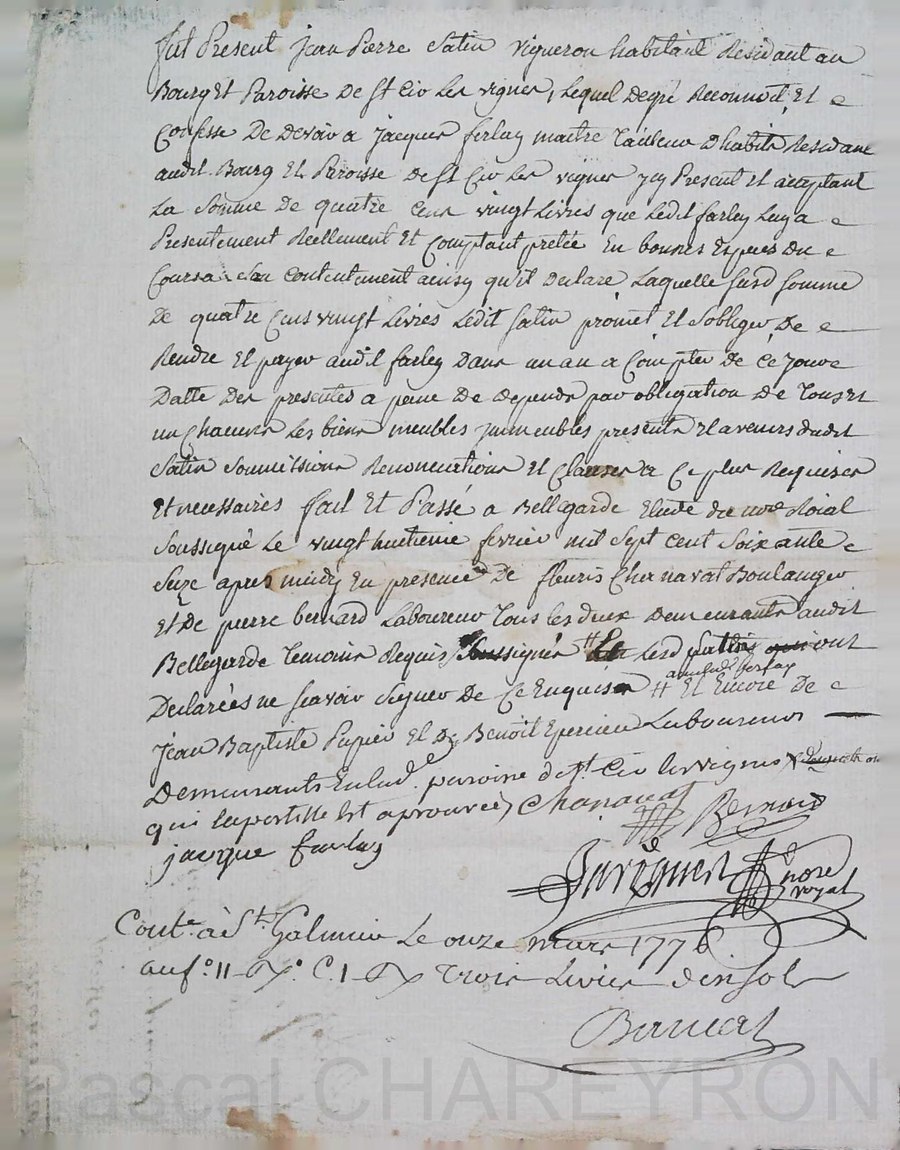 fut Present jean Pierre Satin vigneron habitant Residant au
Bourg Et Paroisse De St Cir Les vignes, Lequel degré Reconnoit, Et
Confesse De Devoir a jacques farlay maitre Tailleur Dhabits Residant
audit Bourg Et Paroisse de St Cir Les vignes jcy Present Et acceptant
La Somme De quatre Cens vingt Livres que Ledit farlay Luy a
Presentement Reellement Et Comptant pretée En bonnes Especes Du
Cours a Son Contentement ainsy qu'il Declare Laquelle susd somme
De quatre Cens vingt Livres Ledit Satin promet Et Soblige De
Rendre Et payer audit farlay Dans un an a Compter de Ce jour
Datte Des presentes a peine De depends par obligation De Tous Et
un Chacuns Les biens meubles jmmeubles presents Et avenirs dudit
Satin Soumissions Renonciations Et Clauses a Ce plus Requises
Et necessaires fait Et Passé a Bellegarde Etude du nore Roial
Soussigné Le vingt huitieme fevrier mil Sept Cent Soixante
Seize apres midy En presence De fleuris Chanavat Boulanger
Et De pierre bernard Laboureur Tous Les deux Demeurants audit
Bellegarde Temoins Requis Soussignés Lesd Satin qui ont
Declarées ne Scavoir Signer De Ce Enquis # Et Encore De
Jean Baptiste Papier Et de Benoît Epercieu Laboureurs
Demeurants Enlad. paroisse de St Cir les vignes
qui lapostille Est aprouvée, Chanavat Bernard
jacque farlay
nore
royal
Cont.e à St. Galmier Le onze mars 1776
au fo. 11 Ro C. 1 Rx Trois Livres dix sols